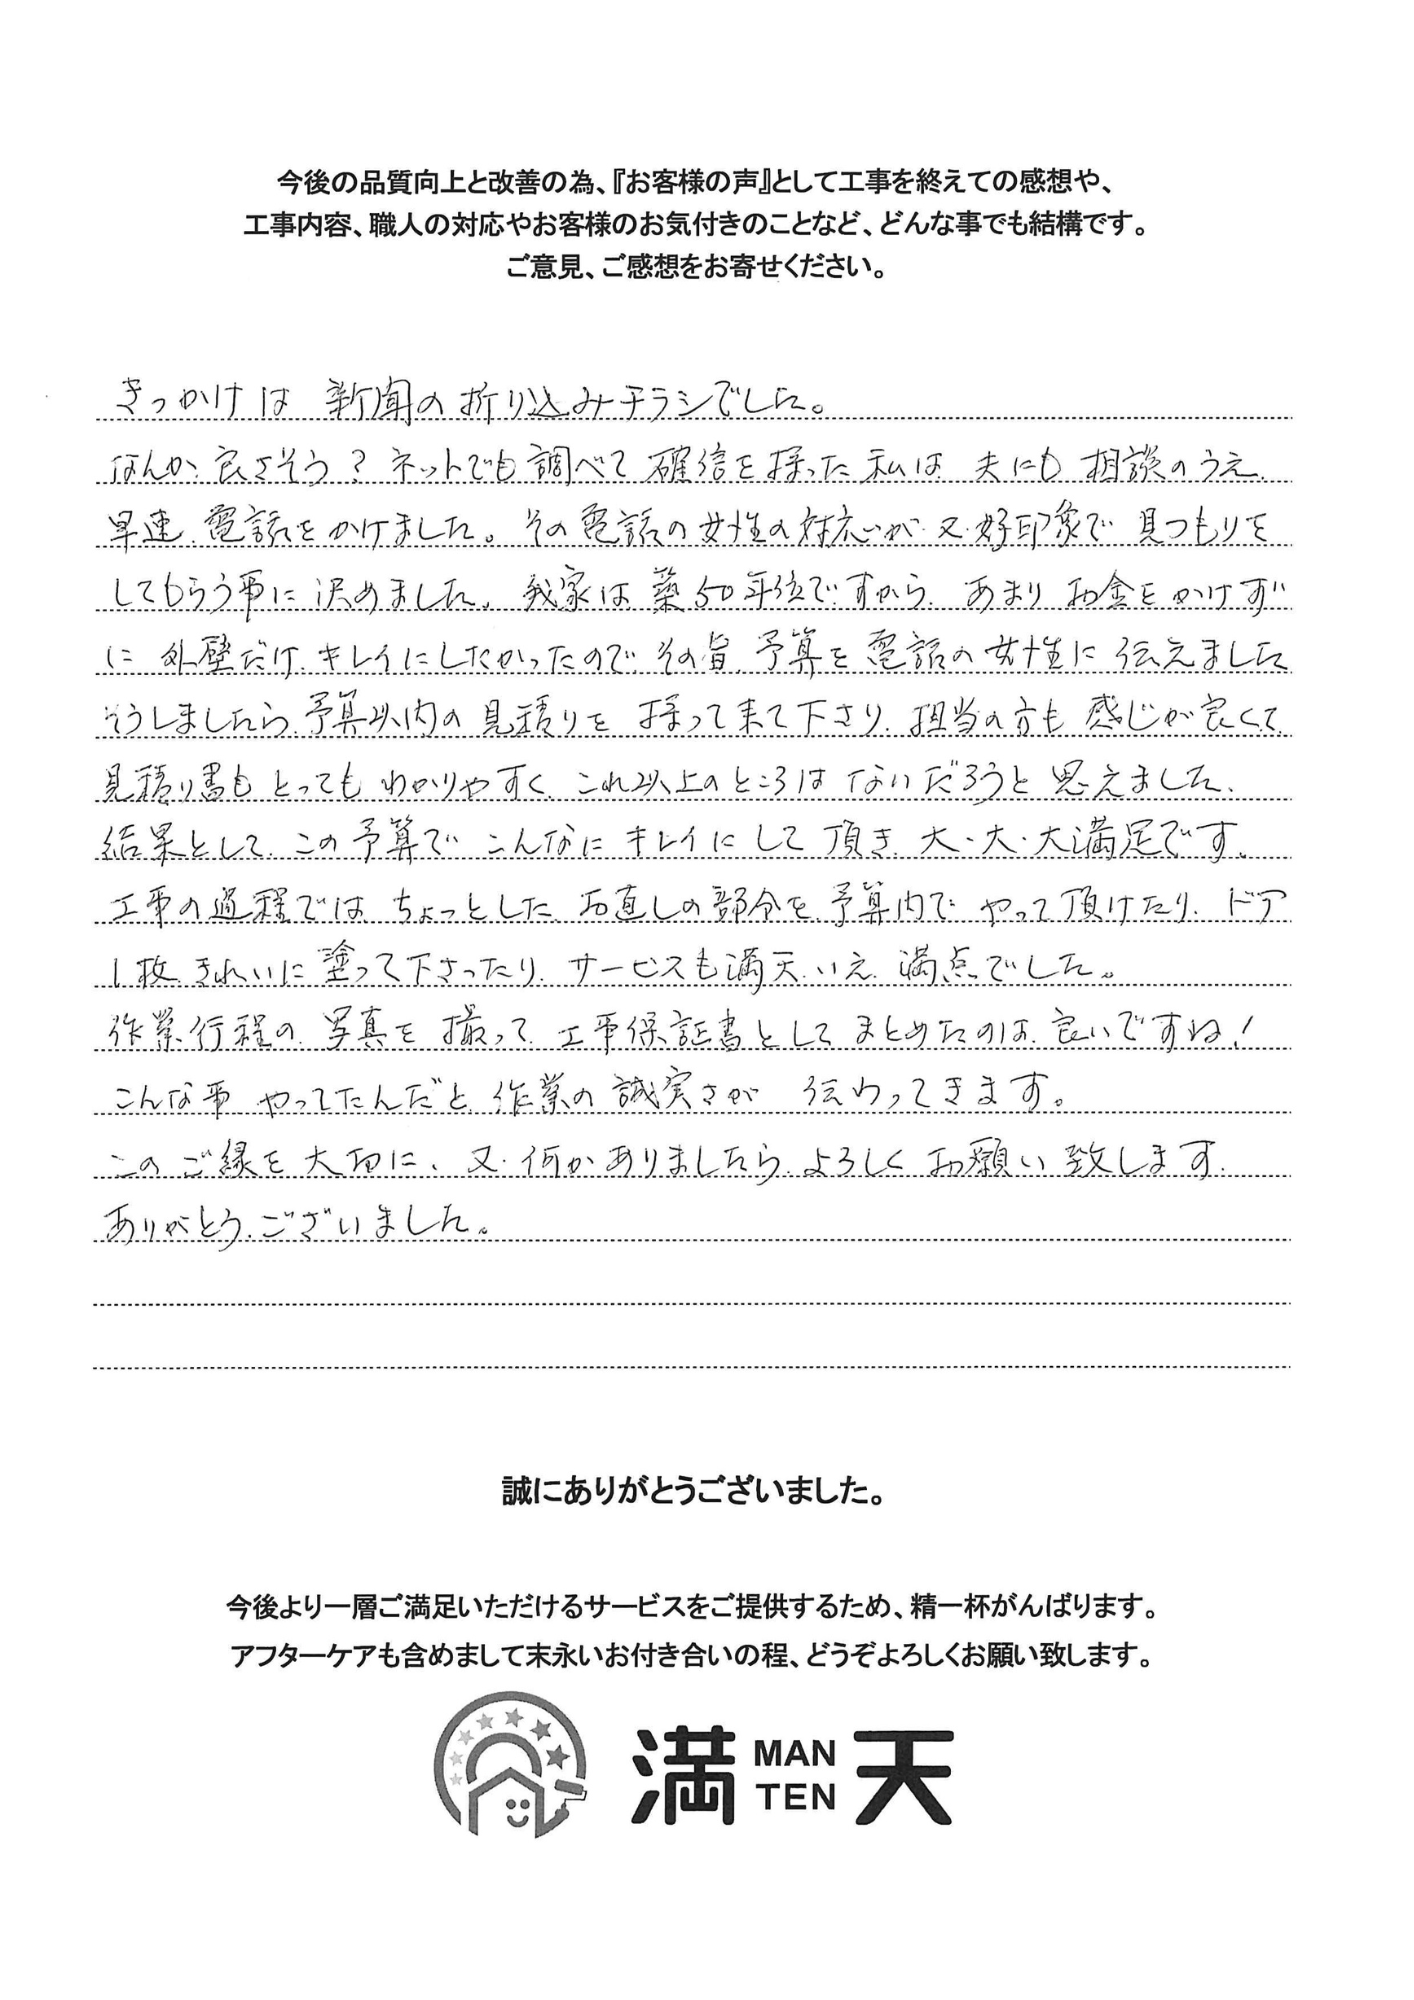 今後の品質向上と改善の為、『お客様の声』として工事を終えての感想や、
工事内容、職人の対応やお客様のお気付きのことなど、どんな事でも結構です。
ご意見、ご感想をお寄せください。
きっかけは 新聞の折り込みチラシでした。
なんか、良さそう？ネットでも調べて確信を持った私は 夫にも相談のうえ、
早速、電話をかけました。その電話の女性の対応が、又、好印象で 見つもりを
してもらう事に決めました。我家は築50年位ですから、あまりお金をかけず
に 外壁だけ、キレイにしたかったので、その旨、予算を電話の女性に伝えました
そうしましたら、予算以内の見積りを持って来て下さり、担当の方も感じが良くて、
見積り書もとってもわかりやすく、これ以上のところはないだろうと思えました。
結果として、この予算で こんなにキレイにして頂き、大・大・大満足です。
工事の過程では、ちょっとした、お直しの部分を、予算内で やって頂けたり、ドア
1枚、きれいに塗って下さったり、サービスも満天、いえ、満点でした。
作業行程の、写真を撮って、工事保証書としてまとめたのは、良いですね！
こんな事 やってたんだと、作業の誠実さが 伝わってきます。
このご縁を大切に、又、何かありましたら、よろしくお願い致します。
ありがとう、ございました。
誠にありがとうございました。
今後より一層ご満足いただけるサービスをご提供するため、精一杯がんばります。
アフターケアも含めまして末永いお付き合いの程、どうぞよろしくお願い致します。
満 MAN TEN 天